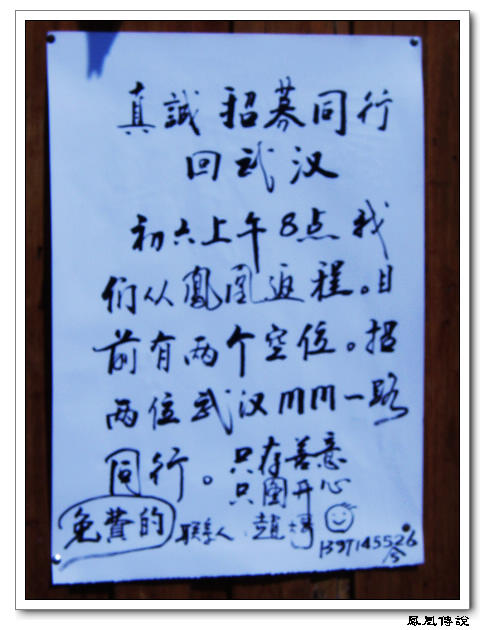 真誠招募同行
回武汉
初六上午8点我
们从鳳凰返程。目
前有两个空位。招
两位武汉MM一路
同行。
只存善意
只圖开心
免費的
联系人:趙
1397145526
鳳凰傳說